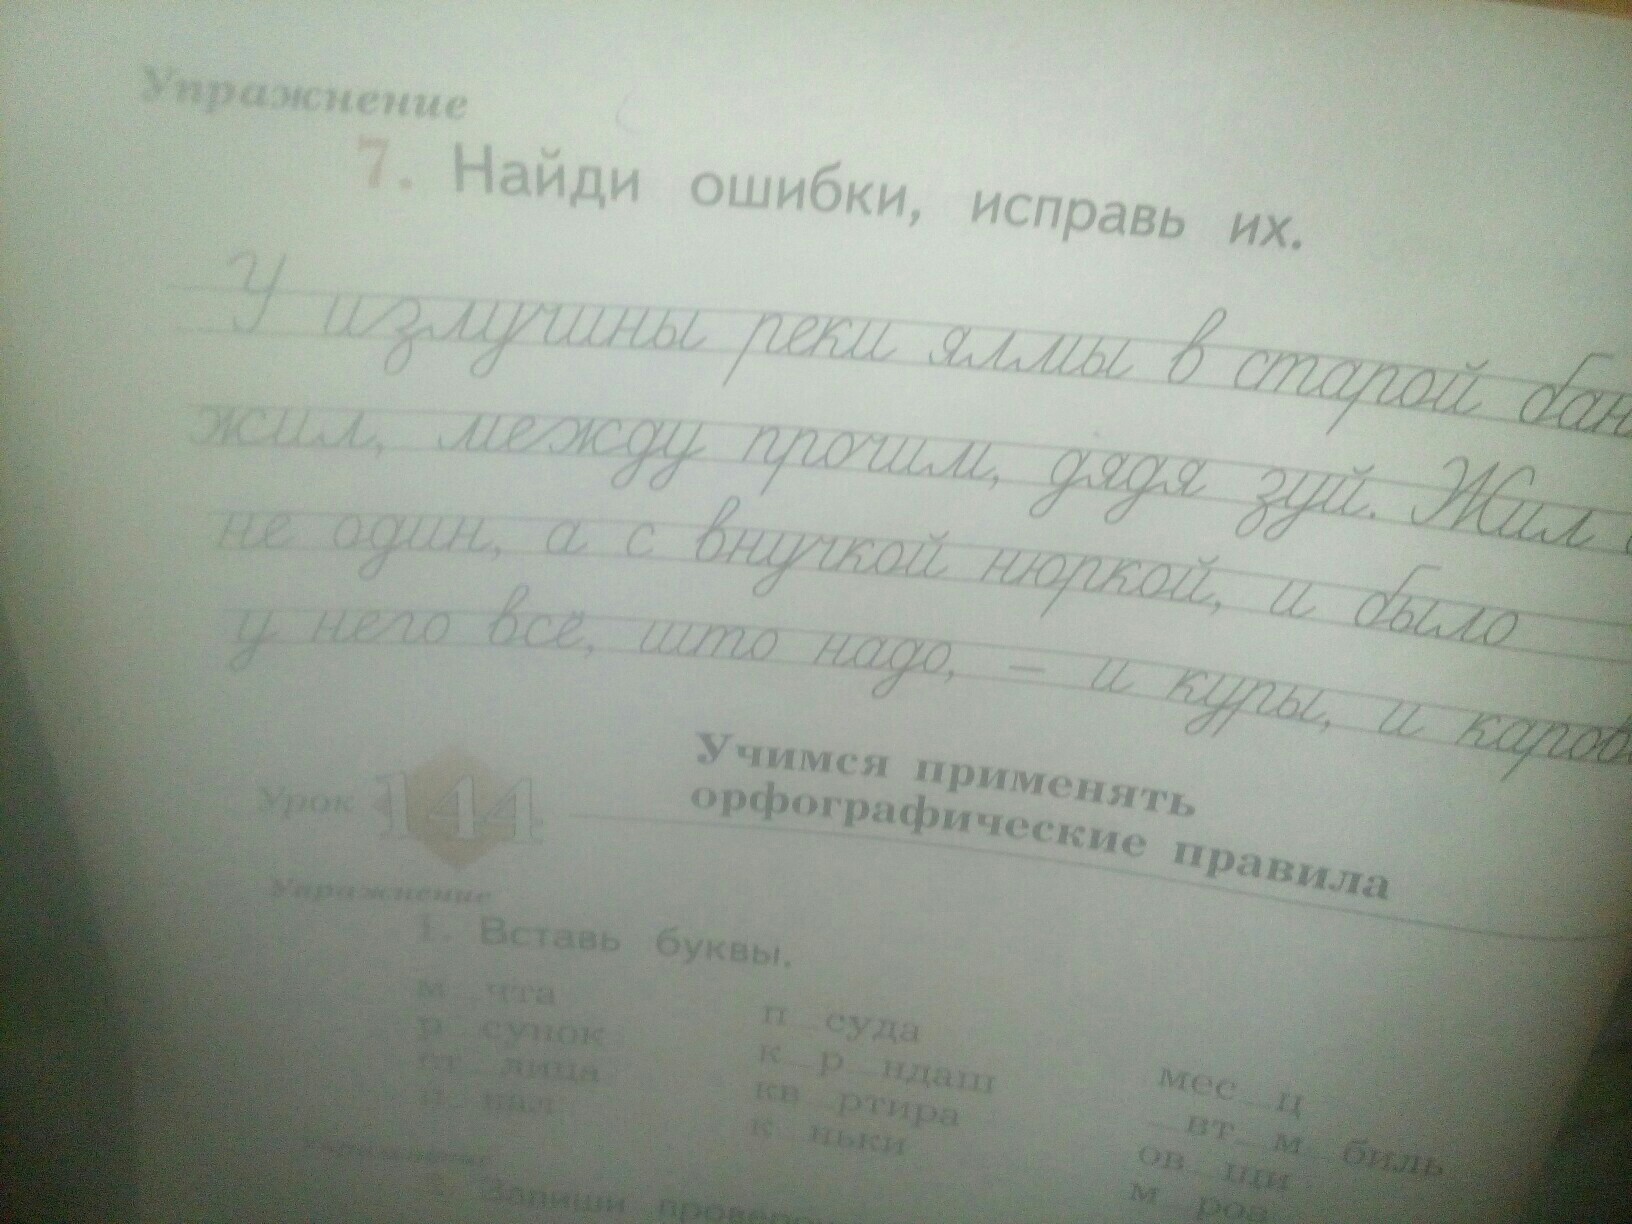 Упражнение
7. Найди ошибки, исправь их.
У излучины реки ялмы в старой бан
жил, между прочим, дядя зуй. Жил
не один, а с внучкой нюркой, и было
у него всё, што надо, – и куры, и каров
Урок 144
Учимся применять
орфографические правила
Упражнение
1. Вставь буквы.
м_чта п_суда мес_ц
р_сунок к_р_ндаш _вт_м_биль
ст_лица кв_ртира ов_щи
п_нал к_ньки м_роз
Упражнение
2. Запиши